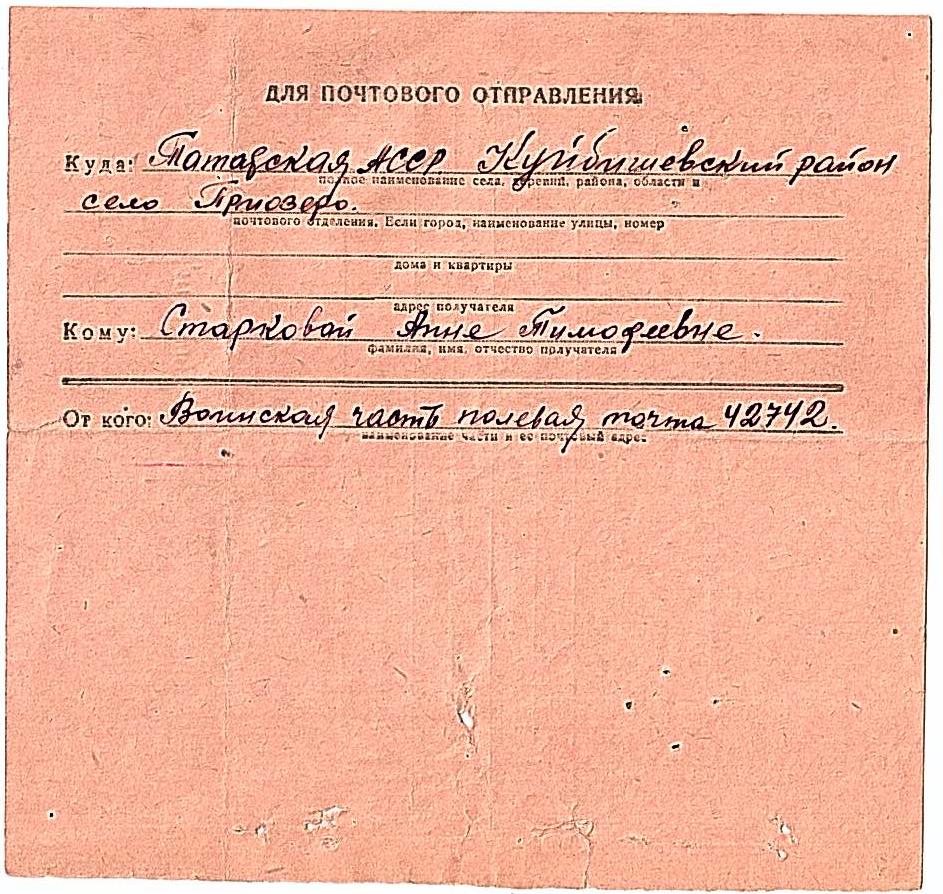 ДЛЯ ПОЧТОВОГО ОТПРАВЛЕНИЯ
Куда: Татарская АССР. Куйбышевский район
полное наименование села, деревни, района, области и
село Приозеро.
почтового отделения. Если город, наименование улицы, номер
дома и квартиры
адрес получателя
Кому: Старковой Анне Тимофеевне.
фамилия, имя, отчество получателя
От кого: Воинская часть полевая почта 42742.
наименование части и ее почтовый адрес